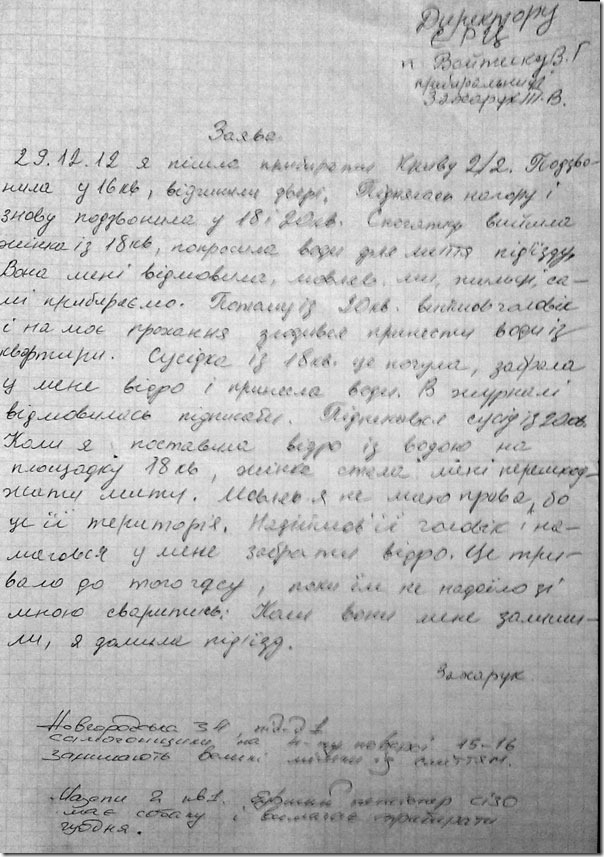 Директору
ЄРЦ
п. Войтику В.Г
прибиральниці
Захарук Т.В.
Заява
29.12.12 я пішла прибирати Криву 2/2. Подзво-
нила у 16 кв, відчинили двері. Піднялась нагору і
знову подзвонила у 18 і 20 кв. Спочатку вийшла
жінка із 18 кв, попросила води для миття під'їзду.
Вона мені відмовила, мовляв ми, жильці, са-
мі прибираємо. Потому із 20 кв. вийшов чоловік
і на моє прохання згодився принести води із
квартири. Сусідка із 18 кв. це почула, забрала
у мене відро і принесла води. В журналі
відмовилась підписати. Підписався сусід із 20 кв.
Коли я поставила відро із водою на
площадку 18 кв, жінка стала мені перешкод-
жати мити. Мовляв я не маю права, бо
це її територія. Надійшов її чоловік і на-
магався у мене забрати відро. Це три-
вало до того часу, поки їм не надоїло зі
мною сваритись. Коли вони мене залиши-
ли, я домила під'їзд.
Захарук
Новгородська 34, під'їзд 1
самогонщики на 4-му поверсі 15-16
залишають великі мішки із сміттям.
Мазепи 2 кв 1. пенсіонер СІЗО
має собаку і вимагає прибирати
щодня.